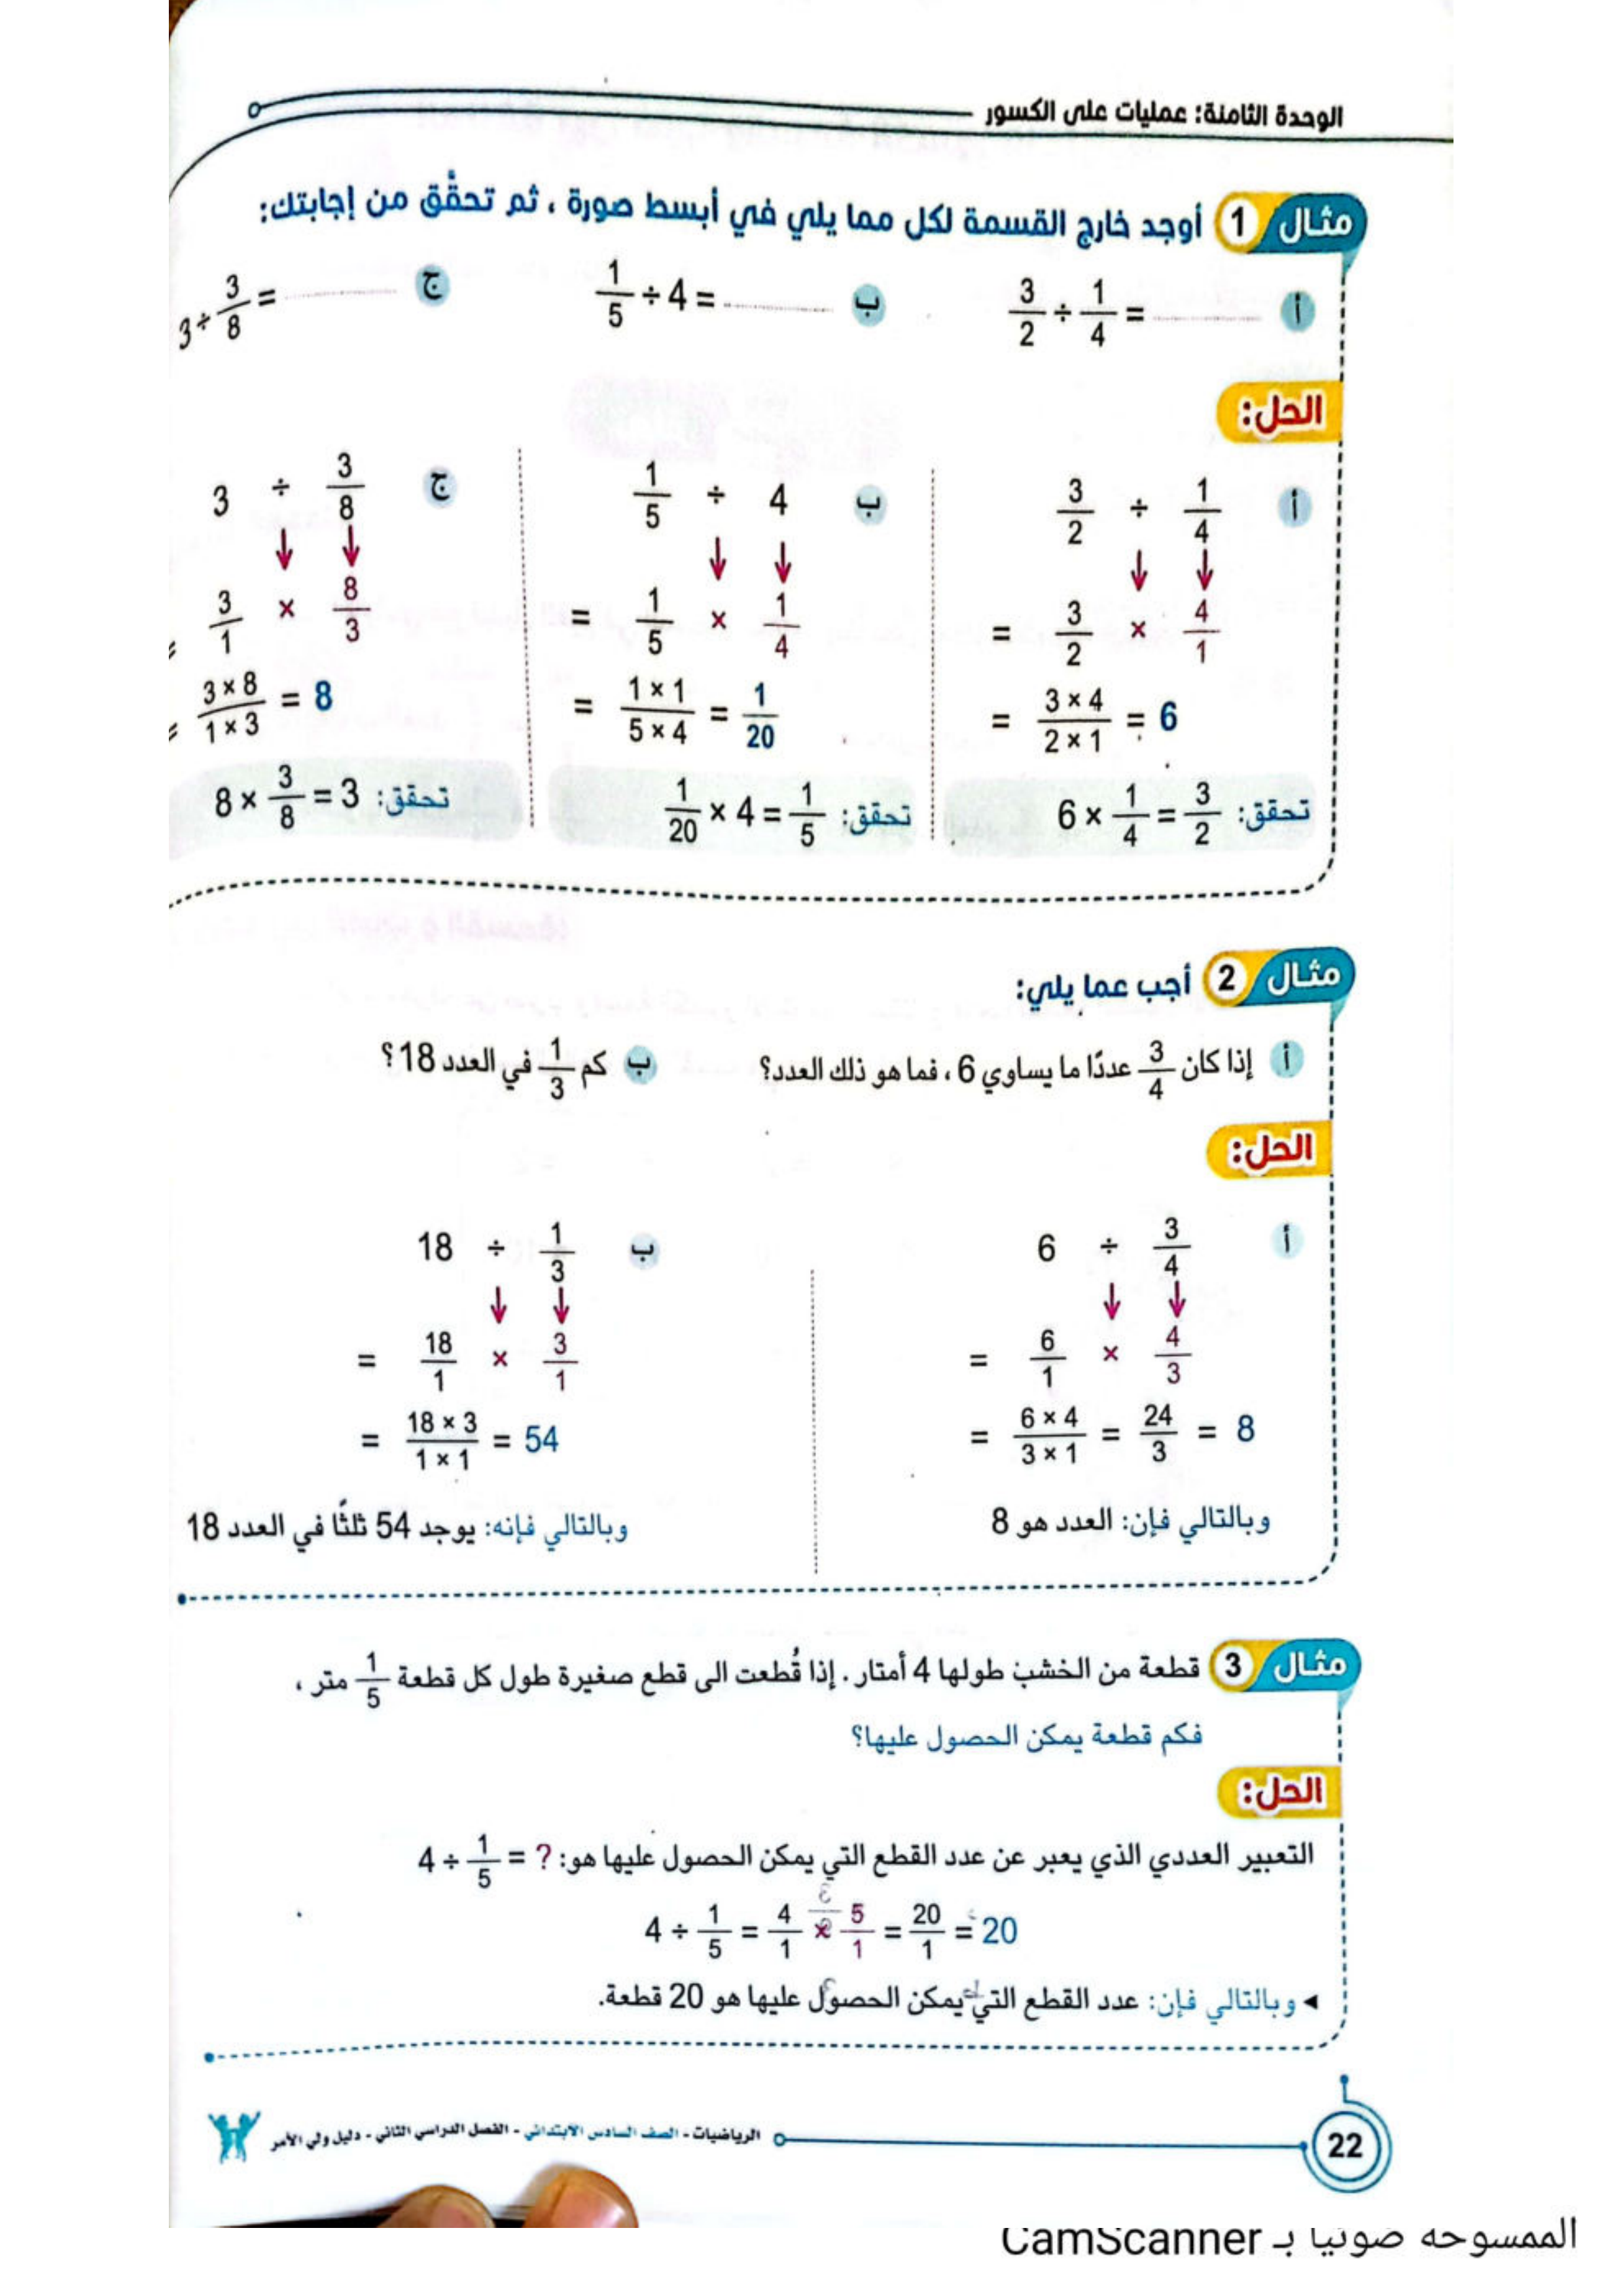 الوحدة الثامنة: عمليات على الكسور
مثال 1 أوجد خارج القسمة لكل مما يلي في أبسط صورة ، ثم تحقَّق من إجابتك:
أ 3/2 ÷ 1/4 = ............ ب 1/5 ÷ 4 = ............ ج 3 ÷ 3/8 = ............
الحل:
أ 3/2 ÷ 1/4 ب 1/5 ÷ 4 ج 3 ÷ 3/8
= 3/2 × 4/1 = 1/5 × 1/4 = 3/1 × 8/3
= (3 × 4)/(2 × 1) = 6 = (1 × 1)/(5 × 4) = 1/20 = (3 × 8)/(1 × 3) = 8
تحقق: 6 × 1/4 = 3/2 تحقق: 1/20 × 4 = 1/5 تحقق: 8 × 3/8 = 3
مثال 2 أجب عما يلي:
أ إذا كان 3/4 عددًا ما يساوي 6 ، فما هو ذلك العدد؟ ب كم 1/3 في العدد 18 ؟
الحل:
أ 6 ÷ 3/4 ب 18 ÷ 1/3
= 6/1 × 4/3 = 18/1 × 3/1
= (6 × 4)/(3 × 1) = 24/3 = 8 = (18 × 3)/(1 × 1) = 54
وبالتالي فإن: العدد هو 8 وبالتالي فإنه: يوجد 54 ثلثًا في العدد 18
مثال 3 قطعة من الخشب طولها 4 أمتار . إذا قُطعت الى قطع صغيرة طول كل قطعة 1/5 متر ،
فكم قطعة يمكن الحصول عليها؟
الحل:
التعبير العددي الذي يعبر عن عدد القطع التي يمكن الحصول عليها هو: 4 ÷ 1/5 = ?
4 ÷ 1/5 = 4/1 × 5/1 = 20/1 = 20
◂ وبالتالي فإن: عدد القطع التي يمكن الحصول عليها هو 20 قطعة.
الرياضيات - الصف السادس الابتدائي - الفصل الدراسي الثاني - دليل ولي الأمر
22
الممسوحة ضوئيا بـ CamScanner